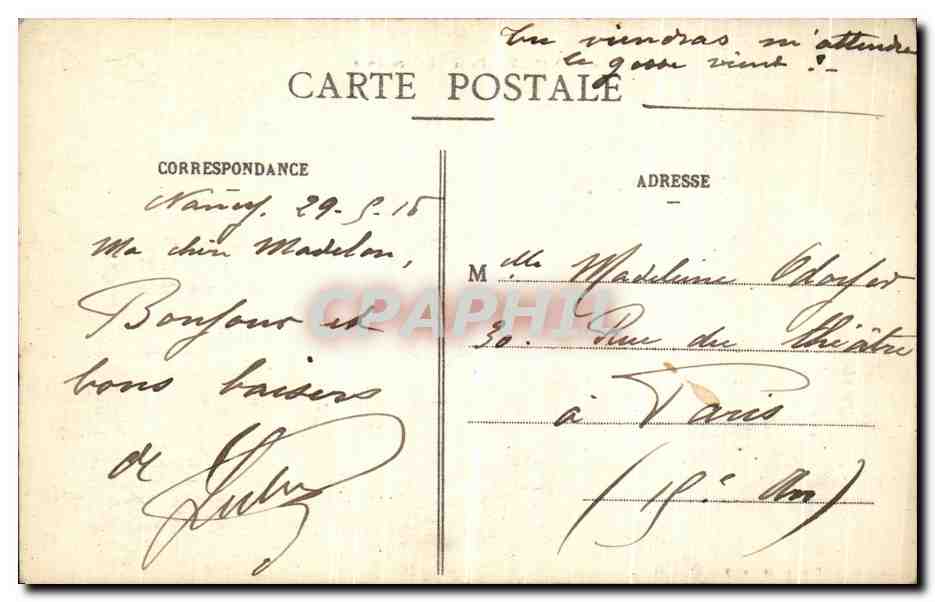 tu viendras m'attendre
le gosse vient !-
CARTE POSTALE
CORRESPONDANCE
Nancy. 29-5-16
Ma chère Madelon,
Bonjour et
bons baisers
de
ADRESSE
Mlle Madeleine
30. Rue du théâtre
à Paris
(15e Arr)
CPAPHIL